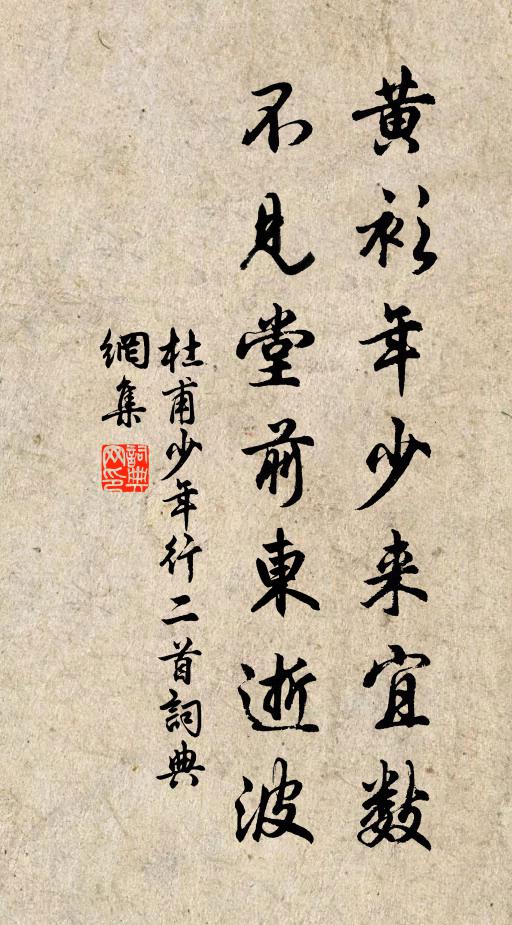 黄衫年少来宜數
不見堂前東逝波
杜甫少年行二首詞典
網集
詞典网印